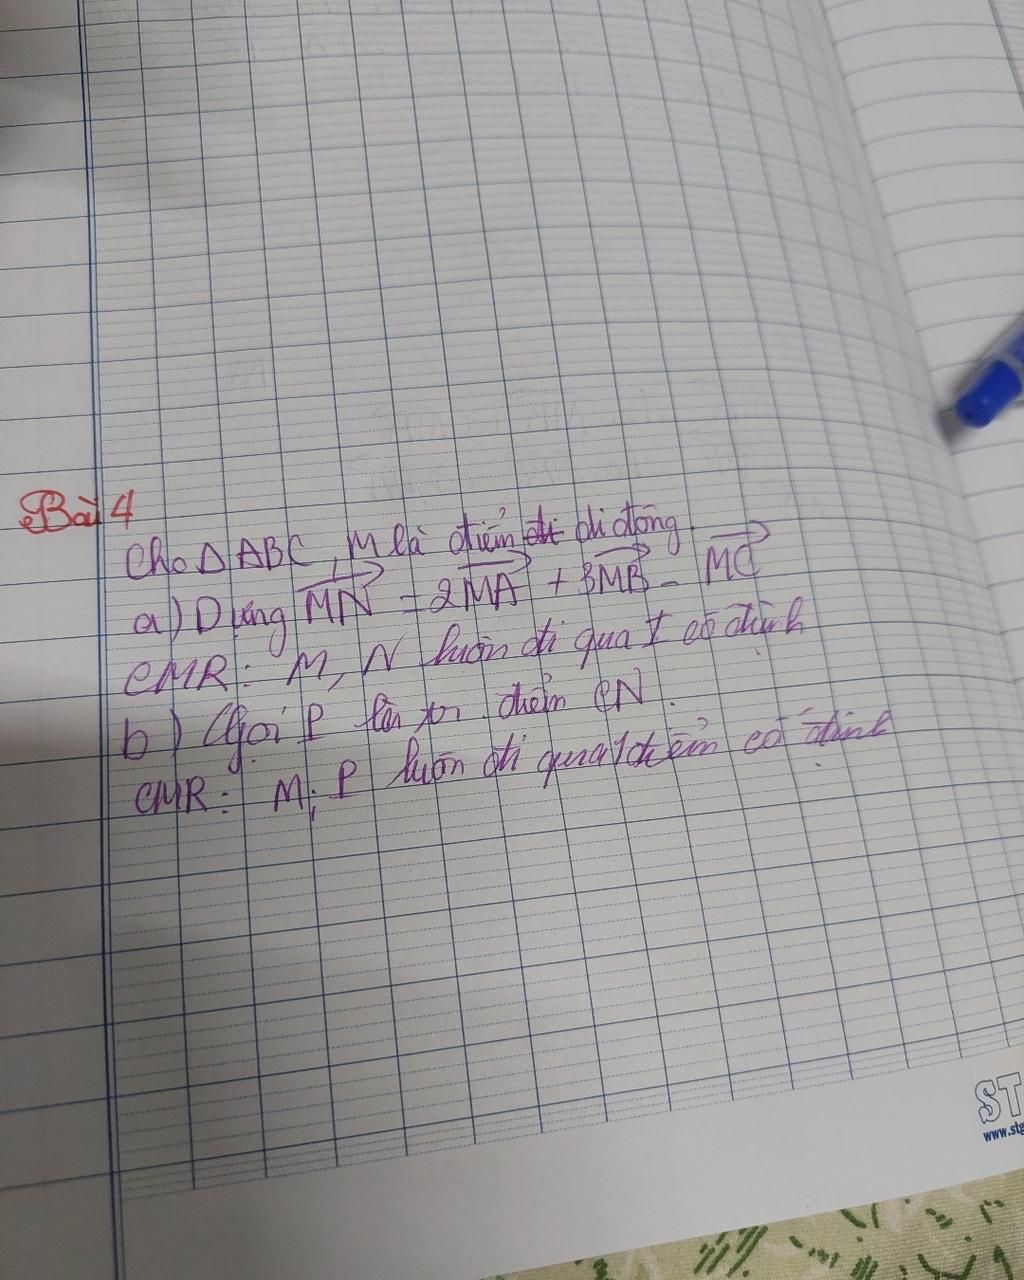 Bài 4
Cho Δ ABC, M là điểm di động
a) Dựng MN = 2MA + 3MB - MC
CMR: M, N luôn đi qua I cố định
b) Gọi P là điểm CN.
CMR: M; P luôn đi qua 1 điểm cố định
ST
www.stg